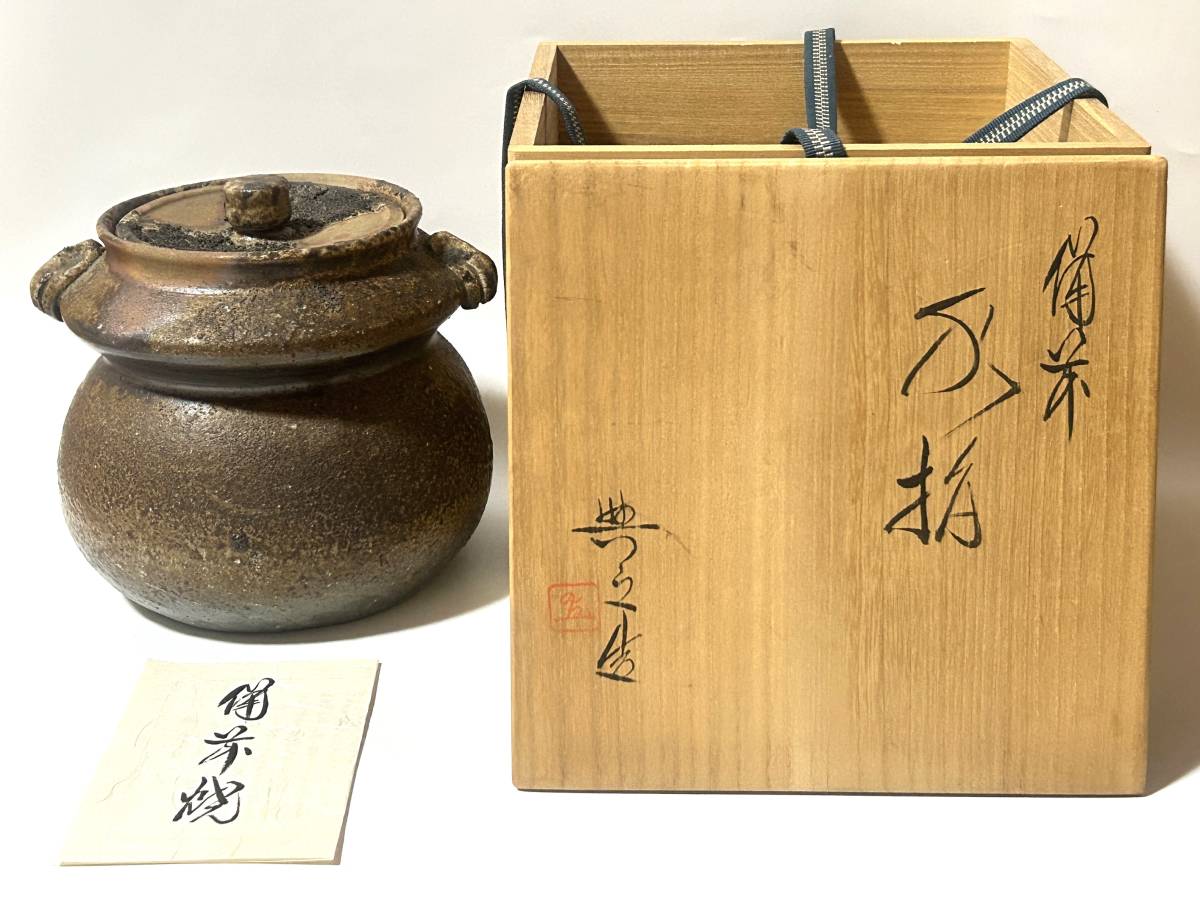 備前
水指
典之造
備前焼